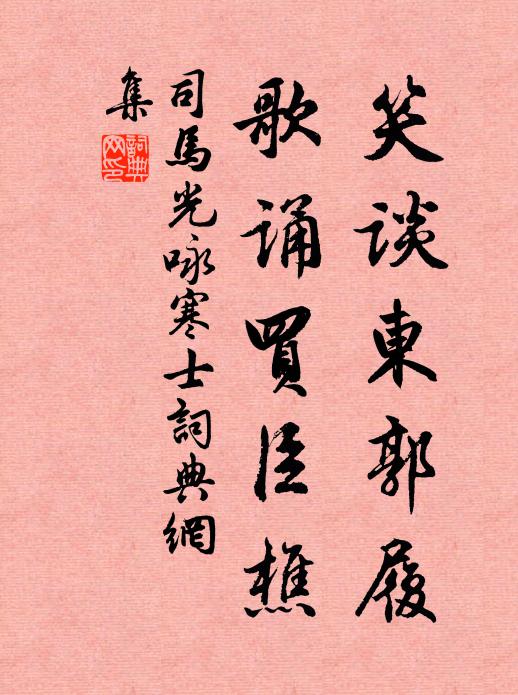 笑談東郭履
歌誦買臣樵
司馬光咏寒士詞典網
集
詞典
网印